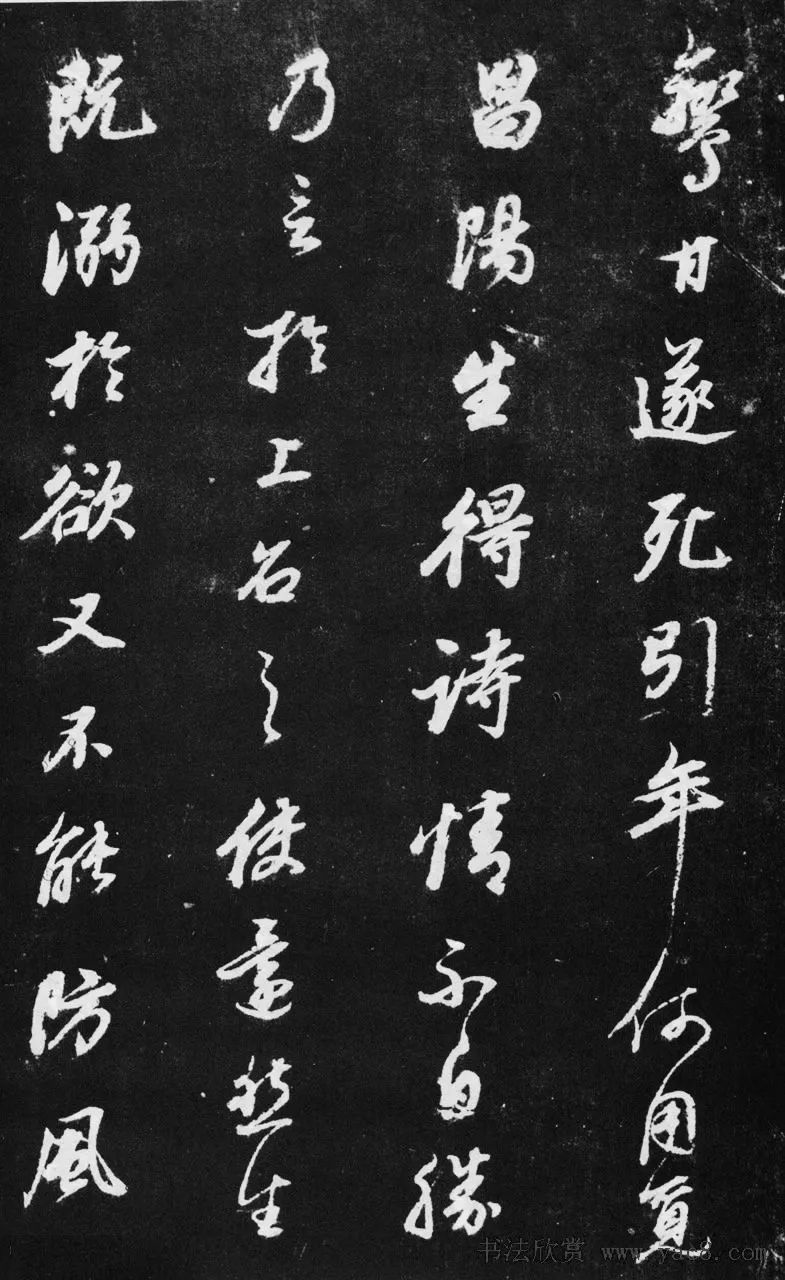 甘遂死引年何用覓
昌陽生得詩情不自勝
乃言於上召之使還然生
既溺於欲又不能防風
书法欣赏 www.yac8.com